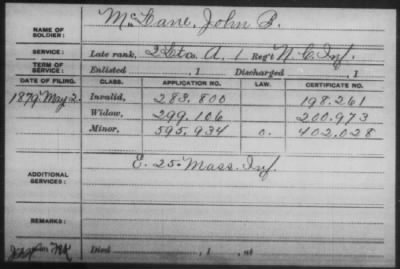 NAME OF SOLDIER: McCane, John P.
SERVICE: Late rank, 2 Lt Co. A, 1 Reg't N C Inf.
TERM OF SERVICE: Enlisted , 1 Discharged , 1
DATE OF FILING. CLASS. APPLICATION NO. LAW. CERTIFICATE NO.
1879 May 2. Invalid, 283.800 198.261
Widow, 299.106 200.973
Minor, 595.934 0. 402.028
ADDITIONAL SERVICES: E. 25 Mass. Inf.
REMARKS:
Died , 1 , at